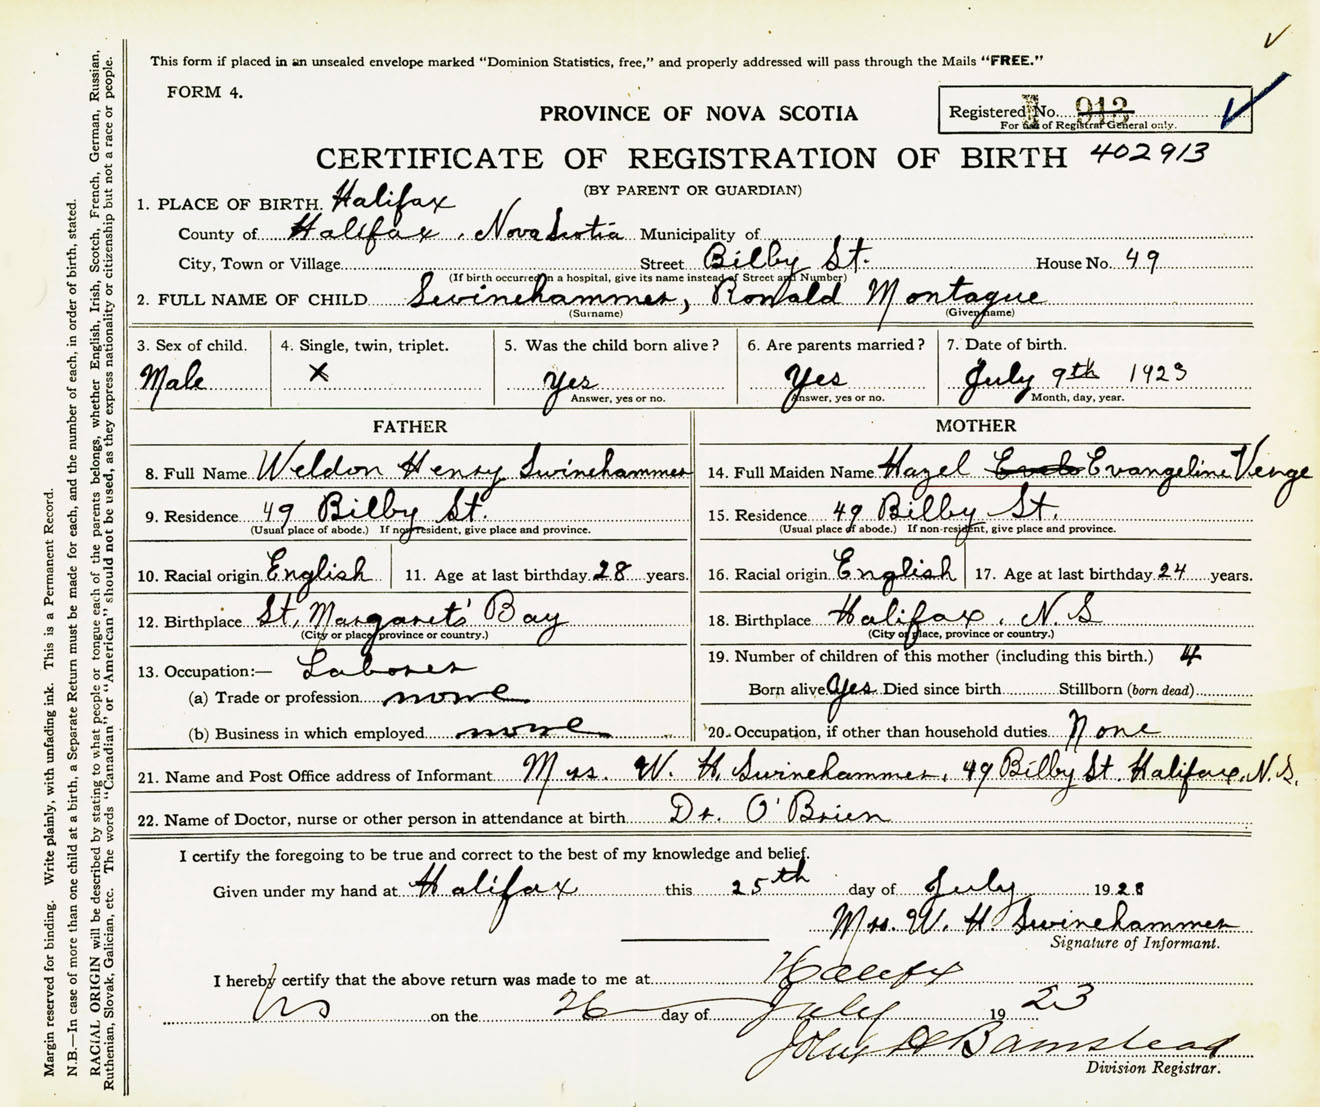 This form if placed in an unsealed envelope marked "Dominion Statistics, free," and properly addressed will pass through the Mails "FREE."
FORM 4.
PROVINCE OF NOVA SCOTIA
Registered No. 913
For use of Registrar General only.
CERTIFICATE OF REGISTRATION OF BIRTH 402913
(BY PARENT OR GUARDIAN)
1. PLACE OF BIRTH. Halifax
County of Halifax, Nova Scotia Municipality of
City, Town or Village Street Bilby St. House No. 49
(If birth occurred in a hospital, give its name instead of Street and Number)
2. FULL NAME OF CHILD Swinehammer, Ronald Montague
(Surname) (Given name)
3. Sex of child. 4. Single, twin, triplet. 5. Was the child born alive? 6. Are parents married? 7. Date of birth.
Male X Yes Yes July 9th 1923
Answer, yes or no. Answer, yes or no. Month, day, year.
FATHER MOTHER
8. Full Name Weldon Henry Swinehammer 14. Full Maiden Name Hazel Evangeline Venge
9. Residence 49 Bilby St. 15. Residence 49 Bilby St.
(Usual place of abode.) If non-resident, give place and province. (Usual place of abode.) If non-resident, give place and province.
10. Racial origin English 11. Age at last birthday 28 years. 16. Racial origin English 17. Age at last birthday 24 years.
12. Birthplace St. Margaret's Bay 18. Birthplace Halifax, N.S
(City or place, province or country.) (City or place, province or country.)
13. Occupation:— Laborer 19. Number of children of this mother (including this birth.) 4
(a) Trade or profession none Born alive Yes Died since birth Stillborn (born dead)
(b) Business in which employed none 20. Occupation, if other than household duties None
21. Name and Post Office address of Informant Mrs. W. H. Swinehammer, 49 Bilby St. Halifax, N.S.
22. Name of Doctor, nurse or other person in attendance at birth Dr. O'Brien
I certify the foregoing to be true and correct to the best of my knowledge and belief.
Given under my hand at Halifax this 25th day of July 1923
Mrs. W. H. Swinehammer
Signature of Informant.
I hereby certify that the above return was made to me at Halifax
NS on the 26 day of July 1923
John H Barnstead
Division Registrar.
Margin reserved for binding. Write plainly, with unfading ink. This is a Permanent Record.
N.B.—In case of more than one child at a birth, a Separate Return must be made for each, and the number of each, in order of birth, stated.
RACIAL ORIGIN will be described by stating to what people or tongue each of the parents belongs, whether English, Irish, Scotch, French, German, Russian,
Ruthenian, Slovak, Galician, etc. The words "Canadian" or "American" should not be used, as they express nationality or citizenship but not a race or people.